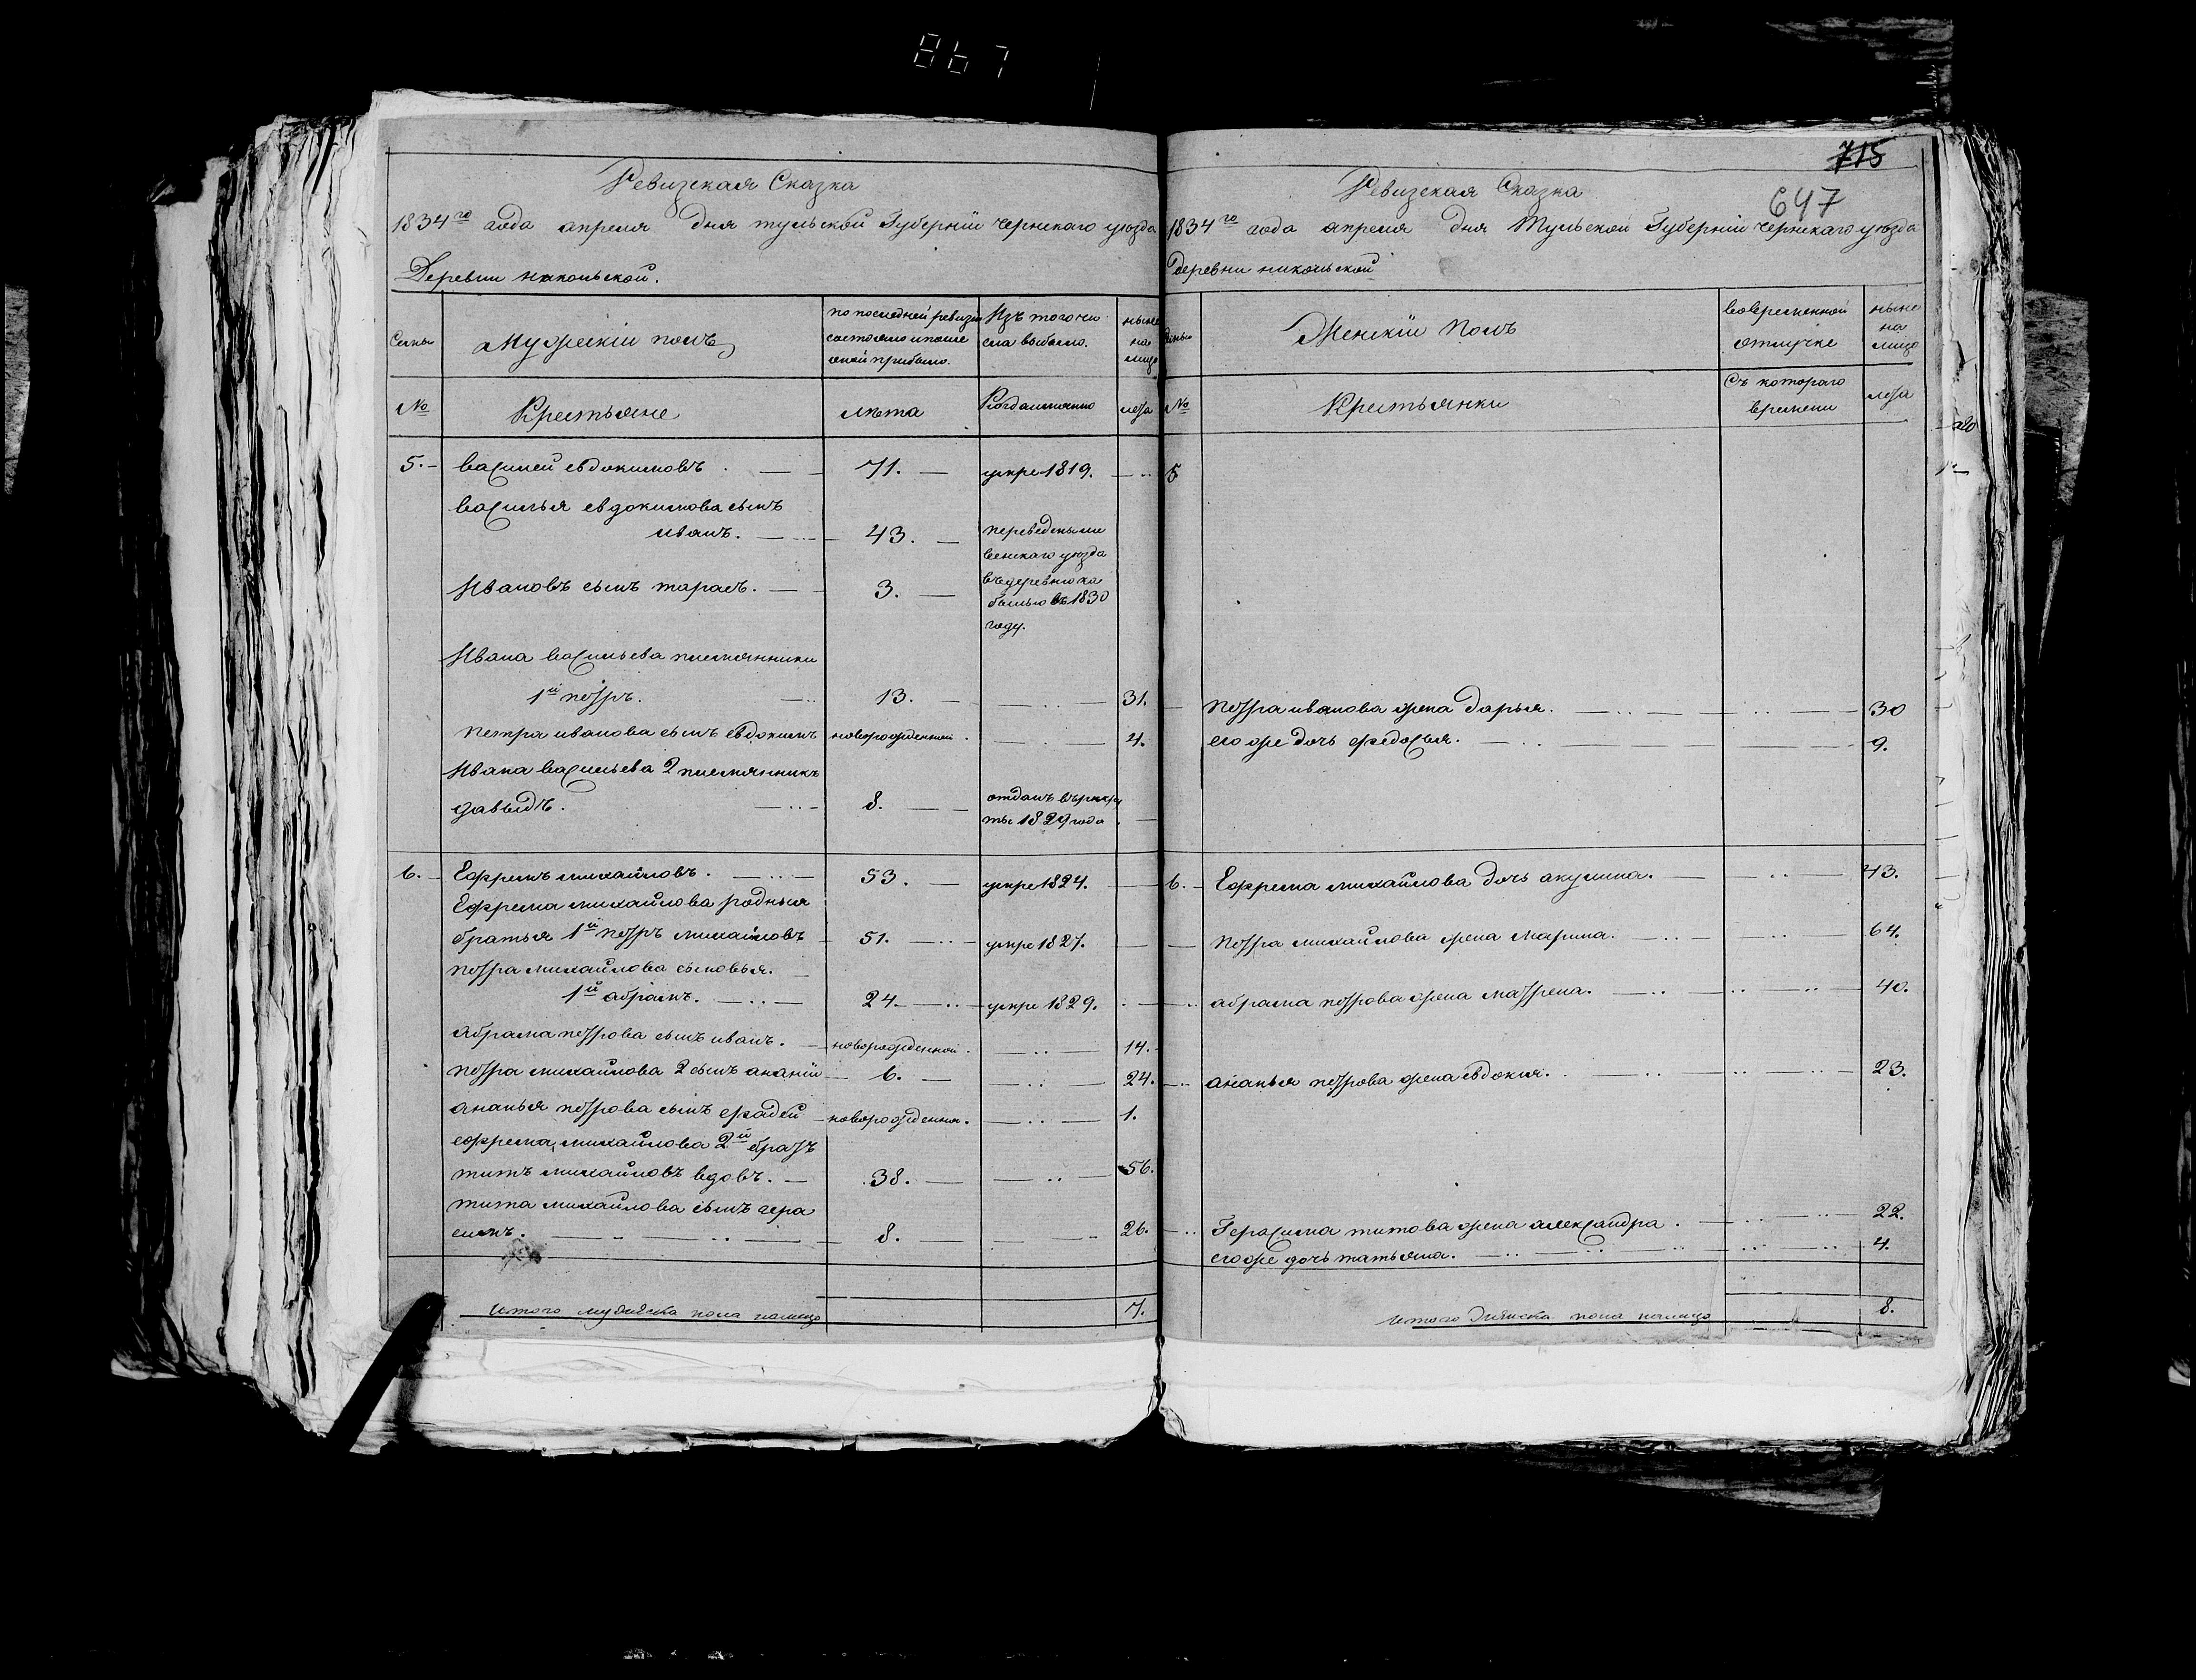 867
Ревизская Сказка
1834го года апреля дня тульской Губернии чернскаго уезда
Деревни никольской.
Семьи
Мужескiй полъ
по последней ревизии
состояло и после
оной прибыло.
Изъ того чи
сла выбыло.
ныне
на
лицо
№
Крестьяне
лета
Когда имянно
лета
5. Василей евдокимовъ. 71. умре 1819.
василья евдокимова сынъ
иванъ. 43. переведены
уезда
Ивановъ сынъ тарасъ. 3. въ деревню
въ 1830
году.
Ивана васильева племянники
1й петръ. 13. 31.
петра иванова сынъ евдокимъ новорожденной. 4.
Ивана васильева 2 племянникъ
давыдъ. 8. отданъ въ рекру
ты 1829 года
6. Ефремъ михайловъ. 53. умре 1824.
Ефрема михайлова родныя
братья 1й петръ михайловъ 51. умре 1827.
петра михайлова сыновья.
1й абрамъ. 24. умре 1829.
абрама петрова сынъ иванъ. новорожденной. 14.
петра михайлова 2 сынъ ананiй 6. 24.
ананья петрова сынъ фадей новорожденни. 1.
ефрема михайлова 2й братъ
титъ михайловъ вдовъ. 38. 56.
тита михайлова сынъ гера
симъ. 8. 26.
Итого мужеска пола налицо 7.
715
647
Ревизская Сказка
1834го года апреля дня Тульской Губернiи чернскаго уезда
деревни никольской
Семьи
Женскiй полъ
вовременной
отлучке
ныне
на
лицо
№
Крестьянки
Съ котораго
времени
лета
5
петра иванова жена дарья. 30
его же дочь федосья. 9.
6. Ефрема михайлова дочь акулина. 43.
петра михайлова жена марина. 64.
абрама петрова жена матрена. 40.
ананья петрова жена евдокия. 23.
Герасима титова жена александра. 22.
его же дочь татьяна. 4.
Итого женска пола налицо 8.